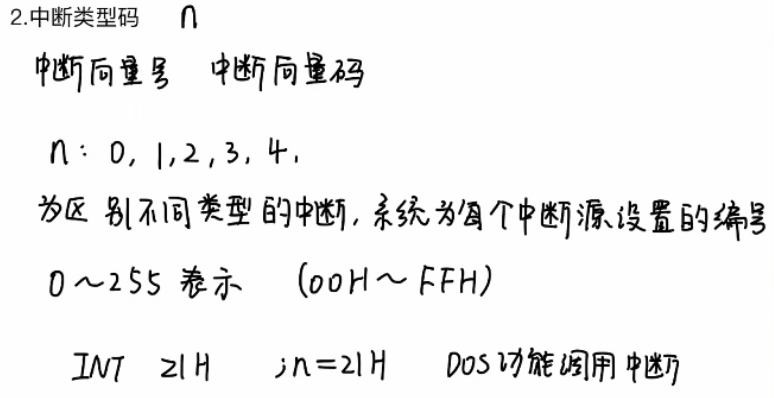 2.中断类型码 n
中断向量号 中断向量码
n: 0, 1, 2, 3, 4,
为区别不同类型的中断, 系统为每个中断源设置的编号
0～255 表示 (00H～FFH)
INT 21H ;n=21H DOS功能调用中断